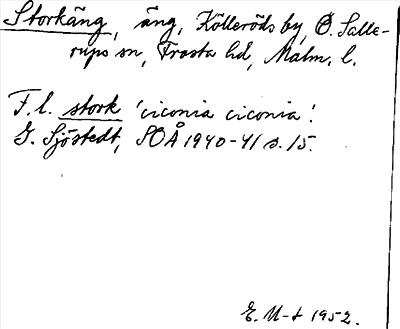 Storkäng, äng, Kölleröds by, Ö. Salle-
rups sn, Frosta hd, Malm. l.
F. l. stork 'ciconia ciconia'.
G. Sjöstedt, SOÅ 1940-41 s. 15.
E. M-t 1952.